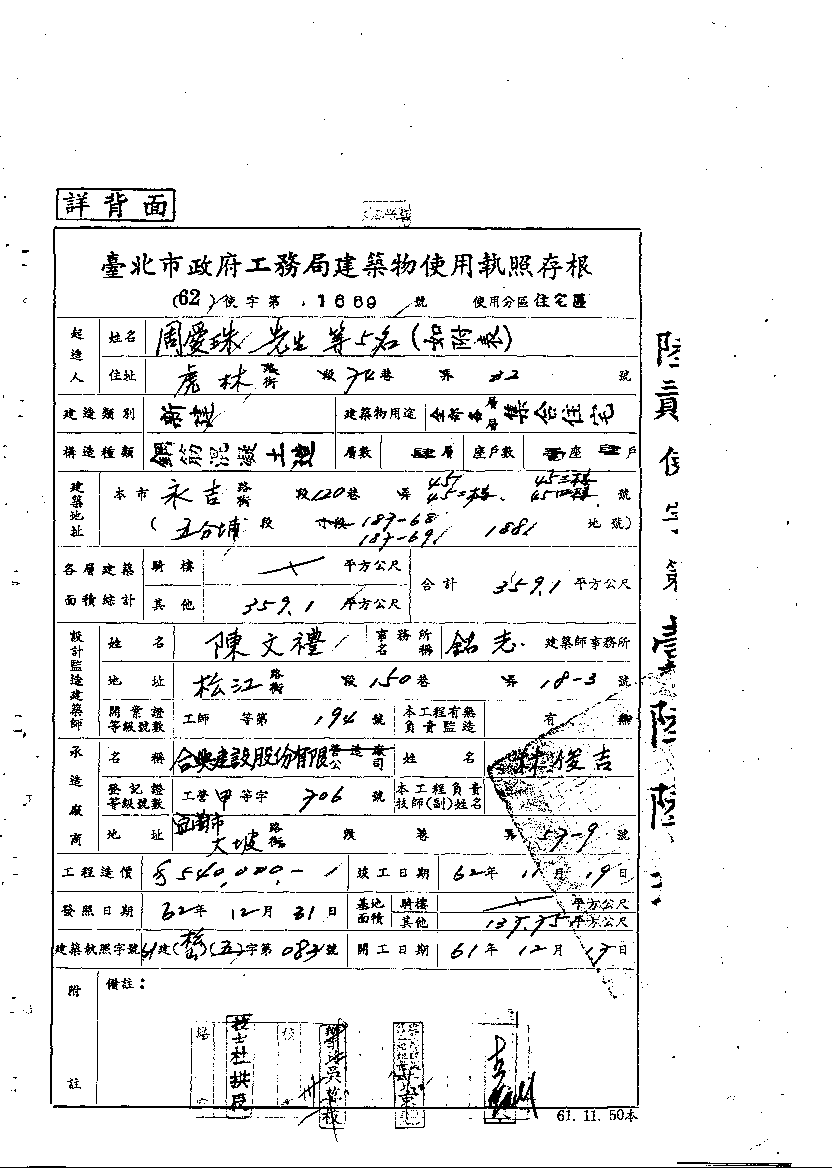 詳背面
臺北市政府工務局建築物使用執照存根
(62)使字第 1669 號 使用分區 住宅區
起造人 姓名 周愛珠 先生 等5名(如附表)
住址 虎林 路街 段 74 巷 弄 22 號
建造類別 新建 建築物用途 全部各層 集合住宅
構造種類 鋼筋混凝土造 層數 肆層 座戶數 座 戶
建築地址 本市 永吉 路街 段 120 巷 弄 號
(五分埔 段 小段 187-68 188 地號)
187-69
各層建築面積綜計 騎樓 平方公尺 合計 359.1 平方公尺
其他 359.1 平方公尺
設計監造建築師 姓名 陳文禮 事務所名稱 銘志 建築師事務所
地址 松江 路街 段 150 巷 弄 18-3 號
開業證等級號數 工師 等第 194 號 本工程有無負責監造 有 無
承造廠商 名稱 合興建設股份有限公司 營造廠 姓名 林俊吉
登記證等級號數 工營 甲 等字 706 號 本工程負責技師(副)姓名
地址 大坡 路街 段 巷 弄 57-9 號
工程造價 $540,000- 竣工日期 62年 11月 19日
發照日期 62年 12月 31日 基地面積 騎樓 平方公尺
其他 平方公尺
建築執照字號 61建(松)(五)字第 083 號 開工日期 61年 12月 17日
附註 備註:
技士杜拱辰
61. 11. 50本